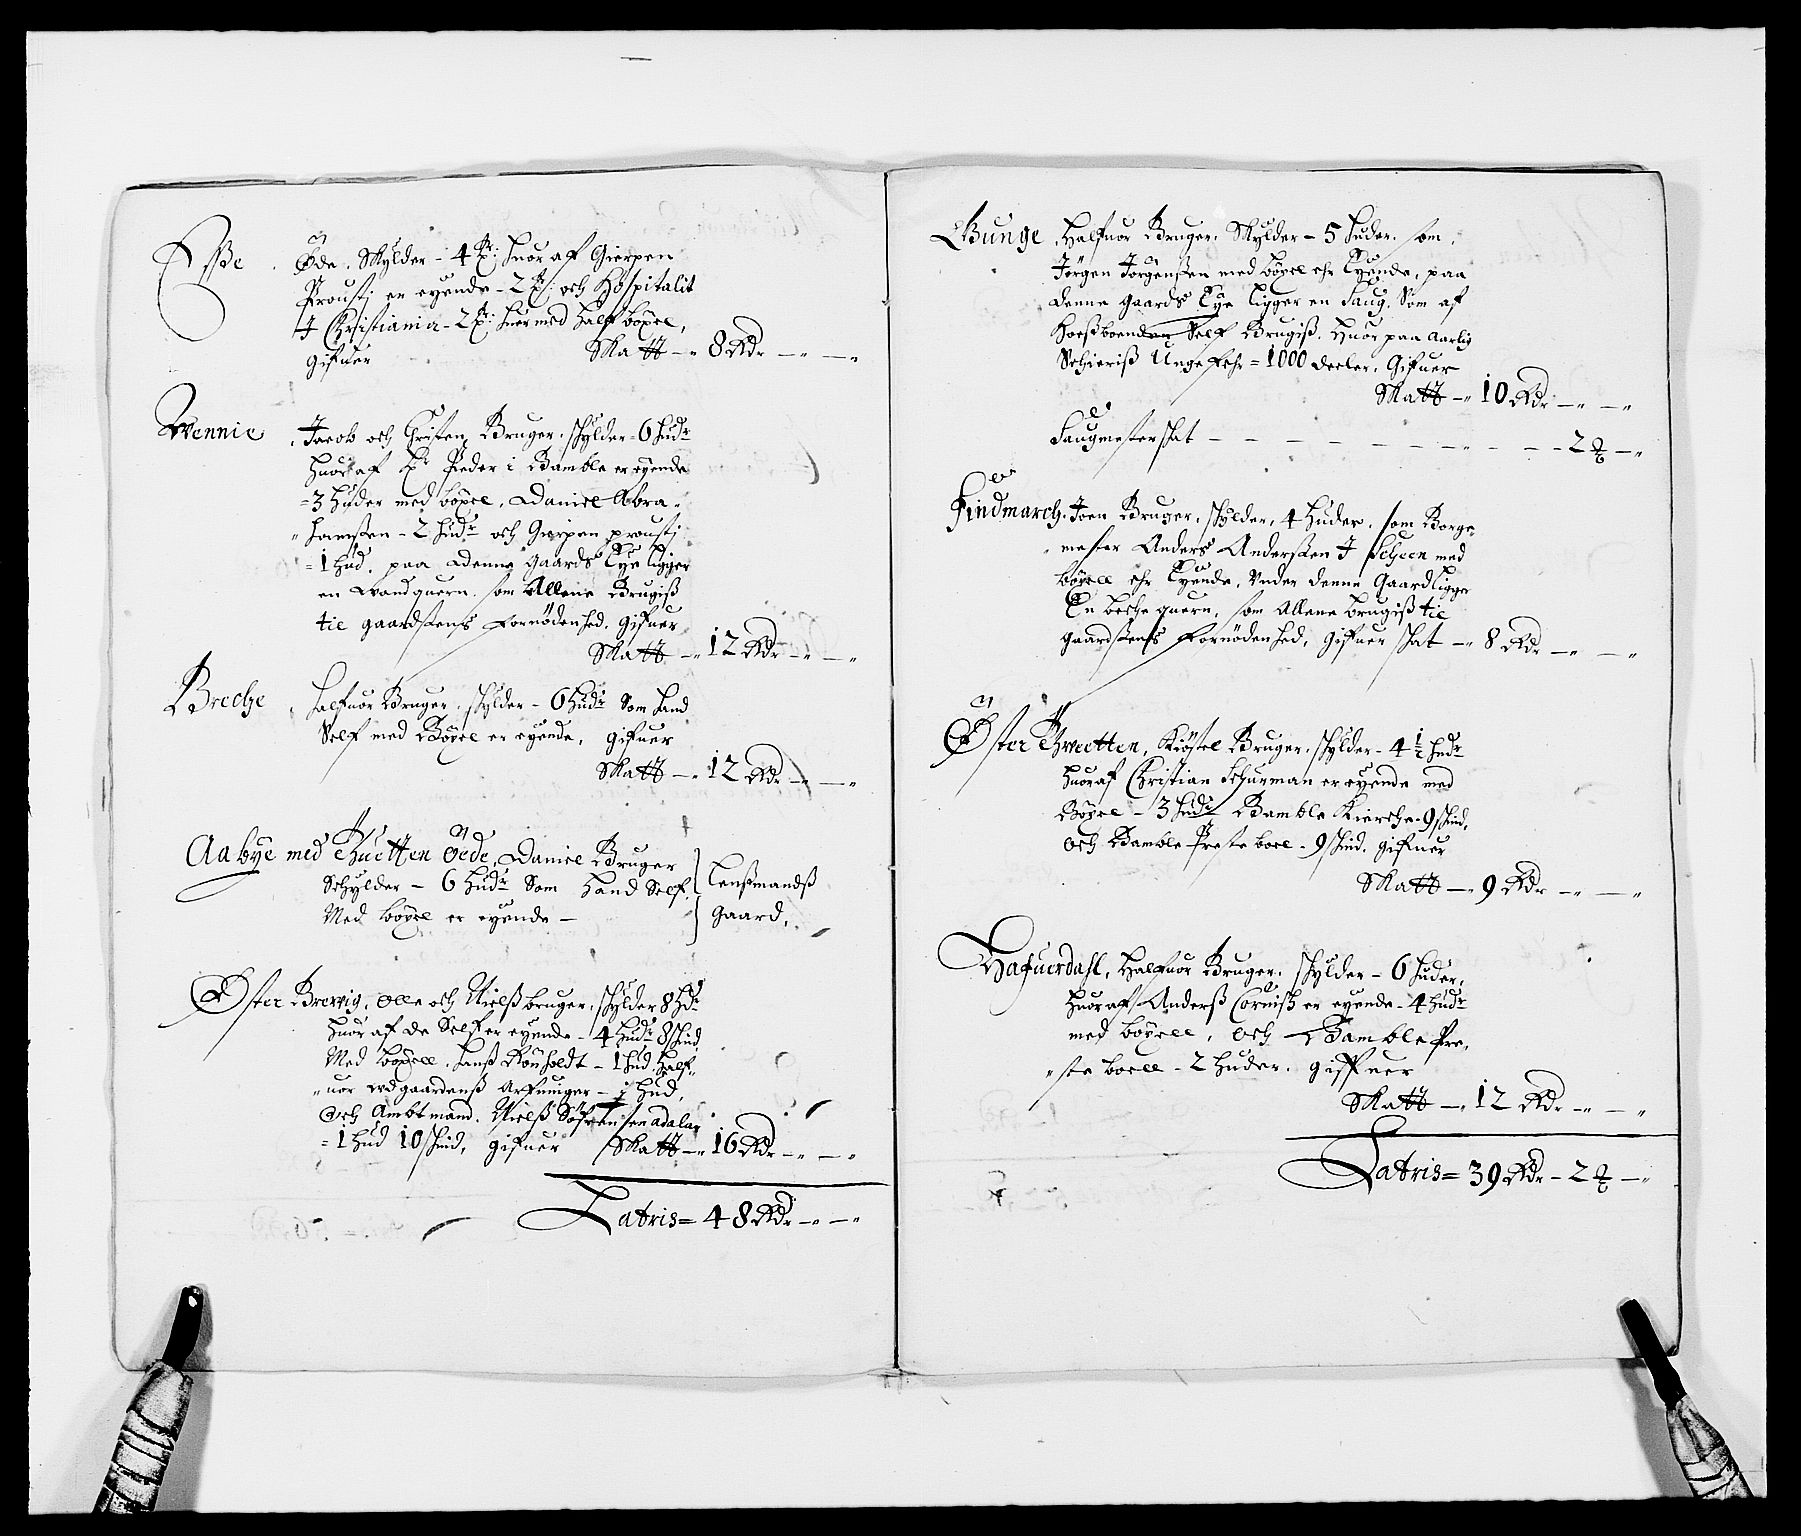 Øde. Skylder - 4 huor af Gierpen
Prousti er eyende - 2 och Hospitalit
J Christiania - 2 huer med half böxel,
gifuer Skatt - 8 Rdr - - -
Wennie . Jacob och Christen Bruger. skylder - 6 hudr
huoraf Peder i Bamble er eyende
= 3 huder med böxel, Daniel Abra-
" hamsen - 2 hudr och Gierpen prousti
= 1 hud. paa denne gaards Eye ligger
en Wandquern. som Allene Brugiß
til gaardsens fornödenhed. gifuer
Skatt - 12 Rdr - - -
Breche . Halfuor Bruger. skylder - 6 hudr Som hand
Self med Böxel er eyende, gifuer
Skatt - 12 Rdr - - -
Aabye med Thuetten öede, Daniel Bruger
Schylder - 6 hudr Som hand Self. Lensmandß
Med böxel er eyende - gaard.
Øster Brewig. Olle och Nielß bruger. skylder 8 hdr
huor af de Self er eyende - 4 hudr 8 skind
Med böxell. Hanß - 1 hud. half-
" uor wdgaardenß Arfuinger - hud,
Och Ambtmand. Nielß Söfrensen adalar
= 1 hud 10 skind, gifuer Skatt - 16 Rdr - - -
Latris = 48 Rdr - -
Bunge . Halfuor Bruger. Skylder - 5 huder. som
Jörgen Jörgenßen med böxel ehr Eyende, paa
denne gaards Eye ligger en Saug. Som af
hoesboenden Self Brugiß. huor paa Aarlig
Schieriß Ungefehr = 1000 deeler. Gifuer
Skatt - 10 Rdr - - -
Saugmesterskat - - - - - 2 - "
Findmarch. Joen Bruger. skylder. 4 huder. som Borge-
" mester Anders Anderssen J Scheen med
böxell ehr Eyende. Vnder denne Gaard ligger
En beche quern, som Allene brugiß til
gaardsens fornödenhed, gifuer skat - 8 Rdr - - -
Øster Thweetten, Kiöstel Bruger. skylder - 4 1/2 hudr
huoraf Christian Schurman er eyende med
Böxel - 3 hudr Bamble Kierche - 9 skind,
och Bamble Preste boel - 9 skind. gifuer
Skatt - 9 Rdr - - -
Hafuerdahl, Halfuor Bruger. skylder - 6 huder,
huor af Anderß Cornisk er eyende - 4 hudr
med böxell, och Bamble Pre-
" ste boell - 2 huder. giffuer
Skatt - 12 Rdr - - -
Latris = 39 Rdr - 2 - "